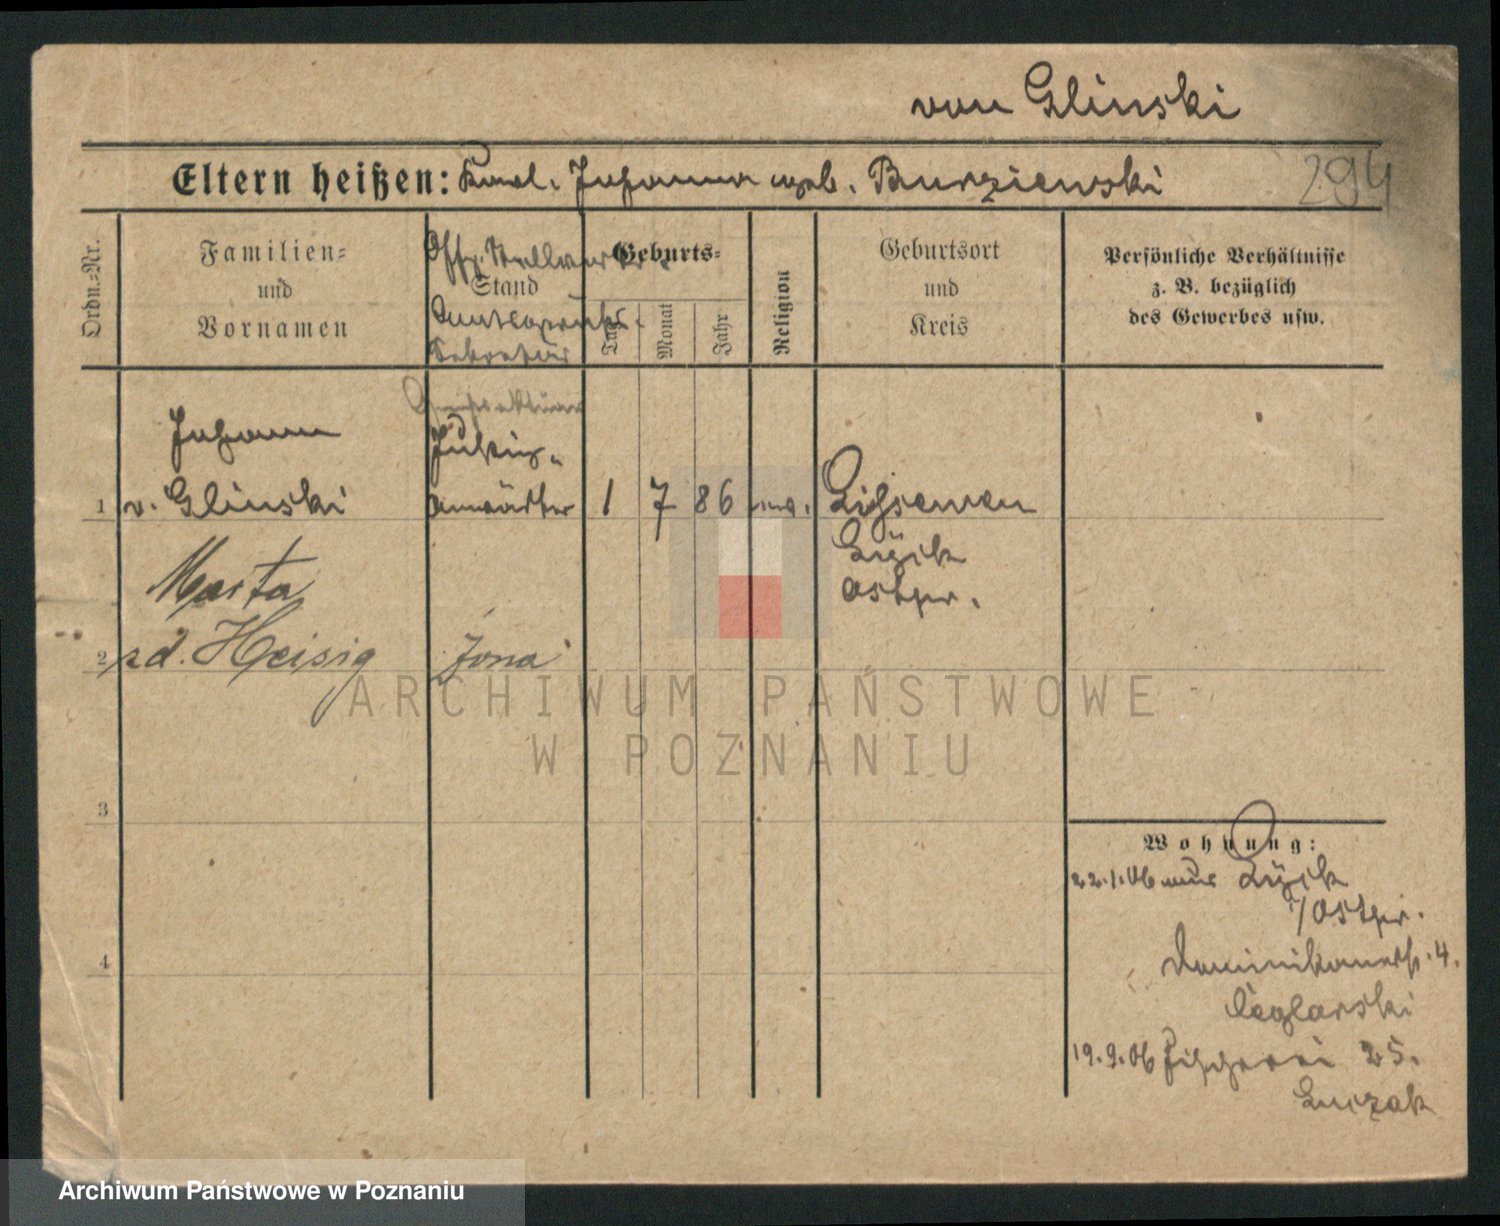 von Glinski
Eltern heißen: Karl. Johanna geb. Burziewski
294
Ordn.-Nr.
Familien-
und
Vornamen
Stand
Sekretär
Geburts-
Tag
Monat
Jahr
Religion
Geburtsort
und
Kreis
Persönliche Verhältnisse
z. B. bezüglich
des Gewerbes usw.
Johann
Justiz-
1 v. Glinski anwärter 1 7 86 Lissewen
Lyck
Ostpr.
Marta
2 zd. Heisig żona
3
4
Wohnung:
22.1.06 aus Lyck
/Ostpr.
Dominikanerstr. 4.
Ceglarski
19.9.06 Fischerei 25.
Kurzak
ARCHIWUM PAŃSTWOWE
W POZNANIU
Archiwum Państwowe w Poznaniu